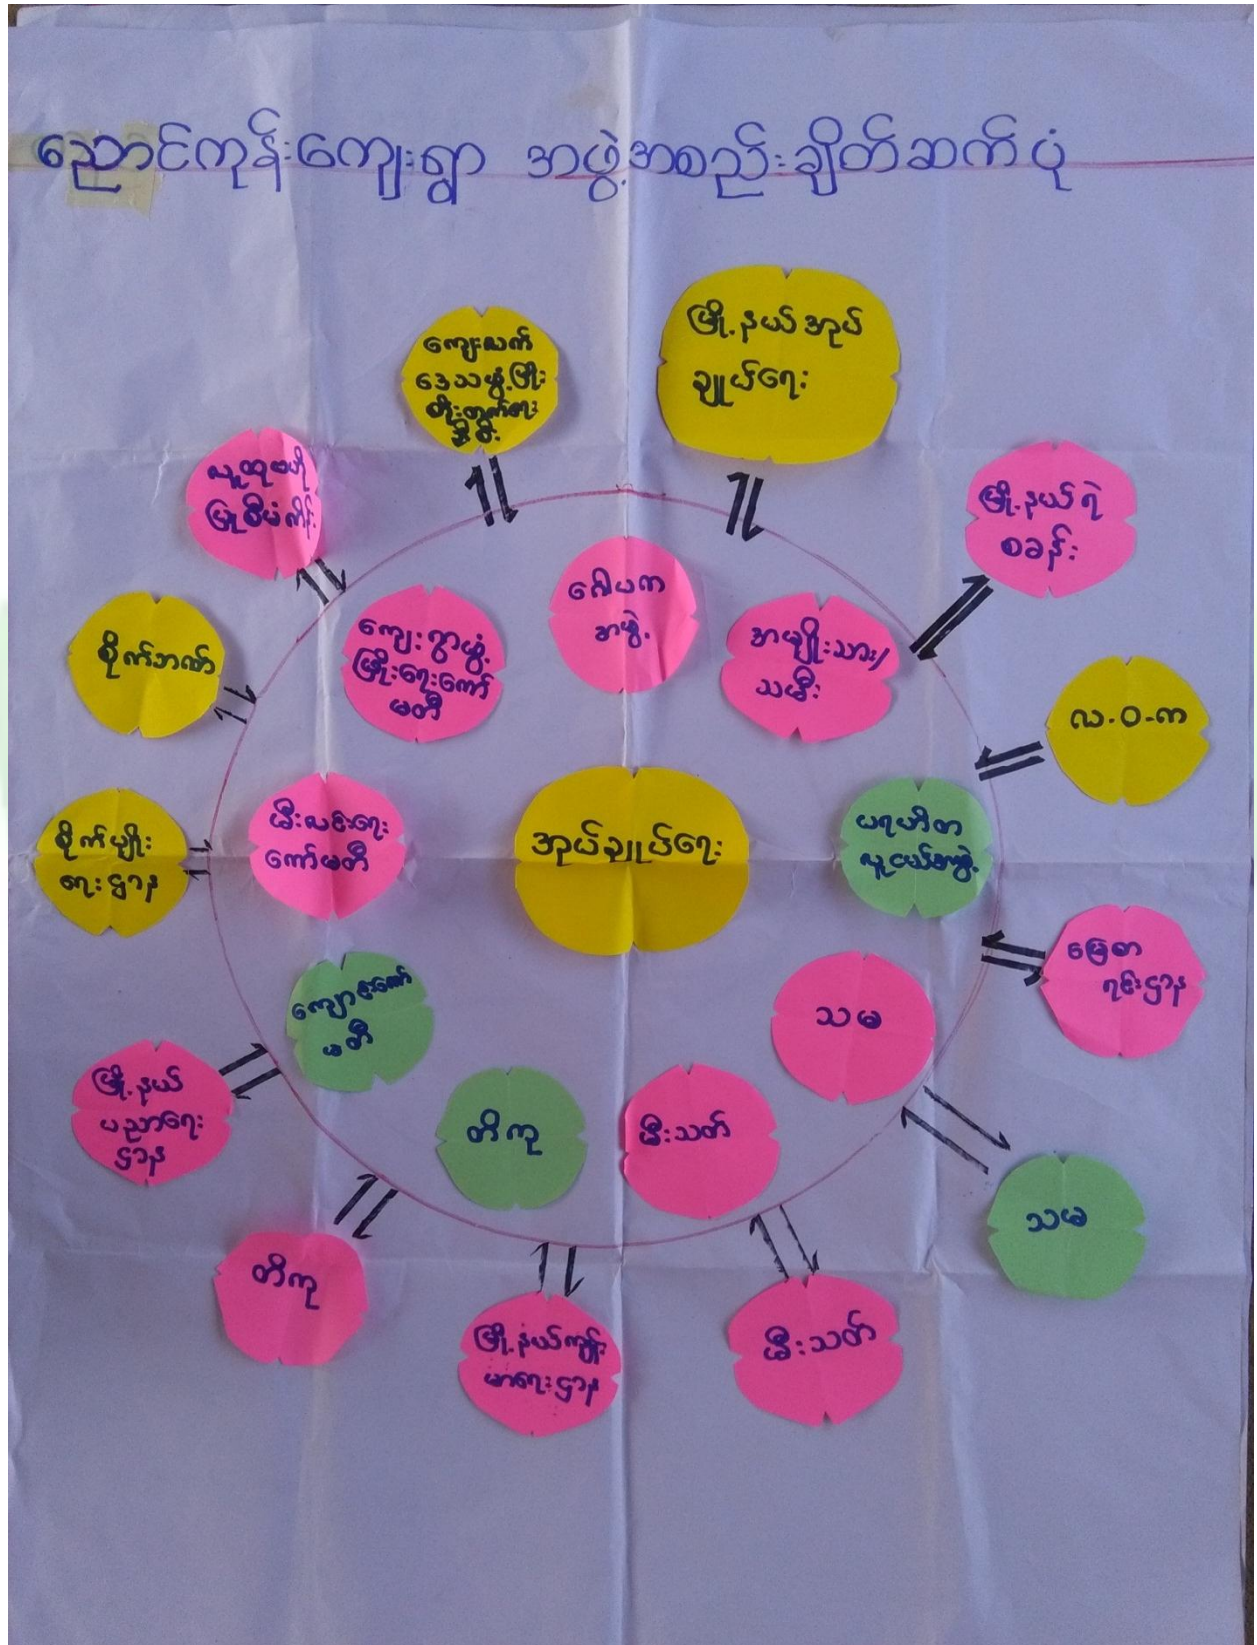 ညောင်ကုန်းကျေးရွာ အဖွဲ့အစည်းချိတ်ဆက်ပုံ
ကျေးလက်
ဒေသဖွံ့ဖြိုး
တိုးတက်ရေး
ဦးစီး
မြို့နယ်အုပ်
ချုပ်ရေး
လူထုဗဟို
ပြုစီမံကိန်း
မြို့နယ်ရဲ
စခန်း
စိုက်ဘဏ်
ကျေးရွာဖွံ့
ဖြိုးရေးကော်
မတီ
ဂေါပက
အဖွဲ့
အမျိုးသား/
သမီး
လ.ဝ.က
စိုက်ပျိုး
ရေးဌာန
မီးလင်းရေး
ကော်မတီ
အုပ်ချုပ်ရေး
ပရဟိတ
လူငယ်အဖွဲ့
ကျောင်းကော်
မတီ
သမ
မြေစာ
ရင်းဌာန
မြို့နယ်
ပညာရေး
ဌာန
တိကု
မီးသတ်
သမ
တိကု
မြို့နယ်ကျန်း
မာရေးဌာန
မီးသတ်